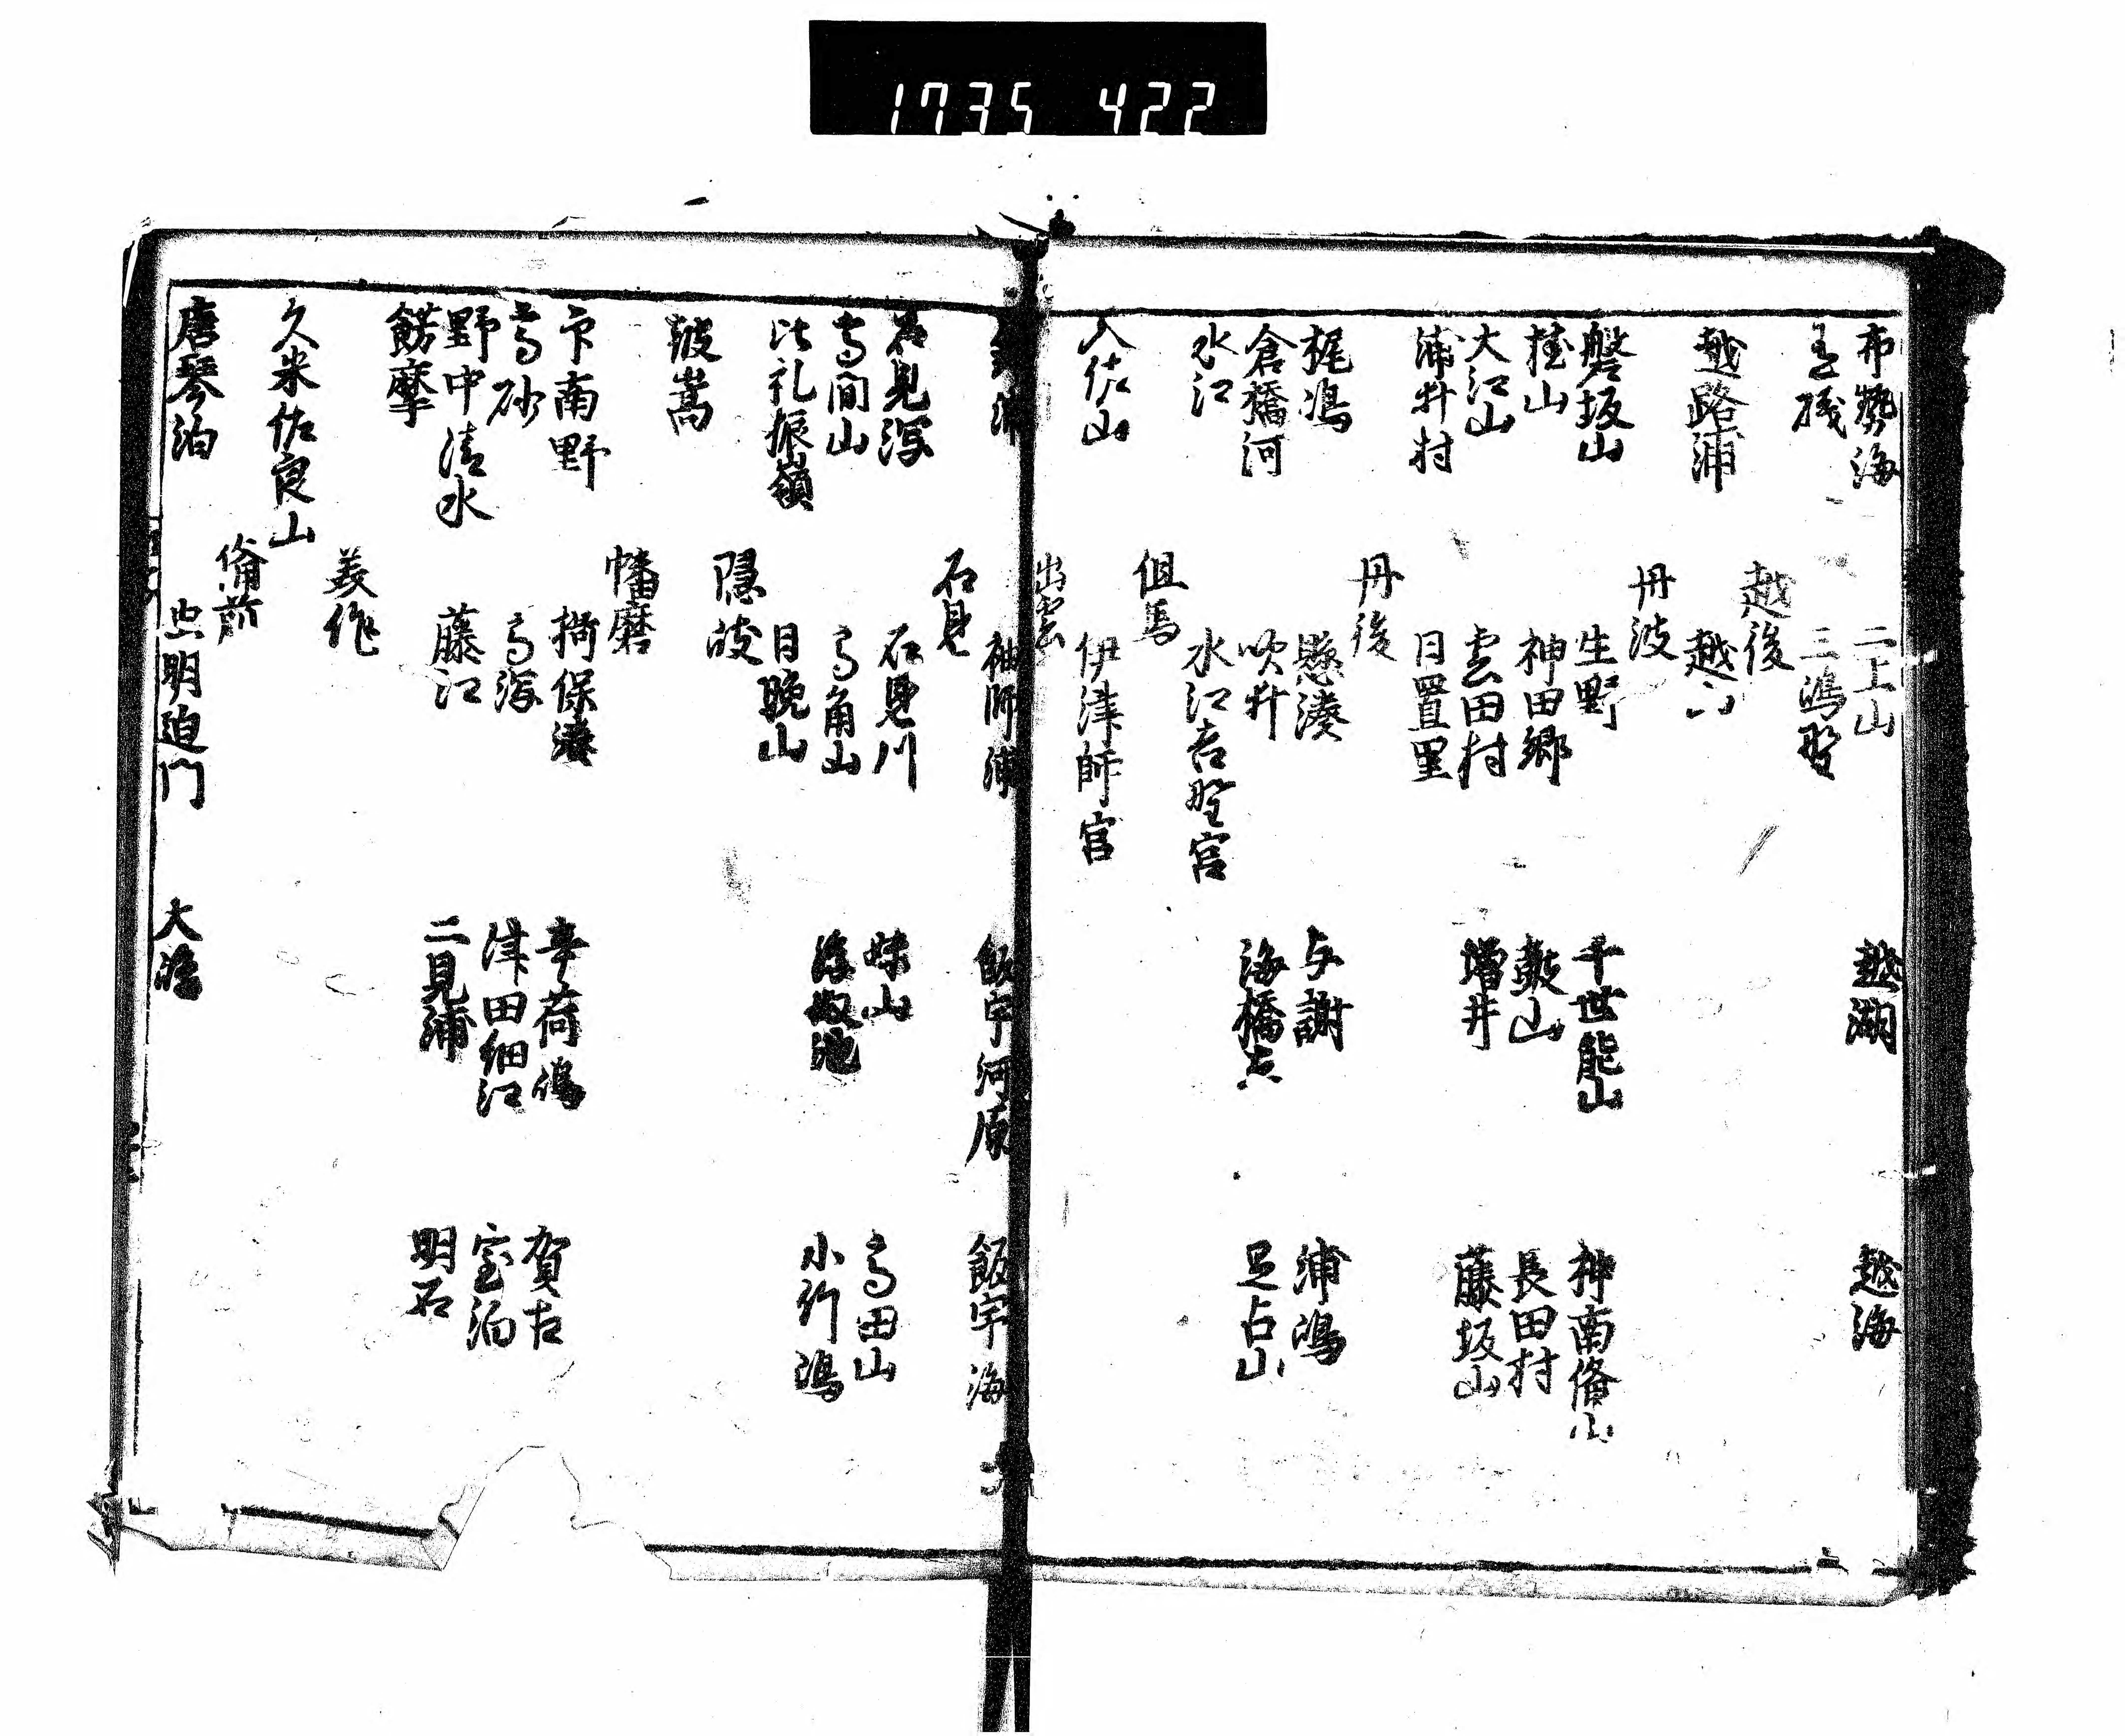 1735 422
布勢海 二上山 越湖 越海
三嶋野
越後
越路浦 越
丹波
磐坂山 生野 千世能山 神南備山
桂山 神田郷 鼓山 長田村
大江山 雲田村 増井 藤坂山
浦井村 日置里
丹後
梶嶋 懸湊 与謝 浦嶋
倉橋河 吹井 海橋立 足占山
水江 水江吉野宮
但馬
入佐山 伊津師宮
出雲
袖師浦 飯宇河原 飯宇海
石見
石見潟 石見川 妹山 高田山
高間山 高角山 浮奴池 小竹嶋
比礼振嶺 日晩山
隠岐
嵩
幡磨
印南野 揖保湊 辛荷嶋 賀古
高砂 高潟 津田細江 室泊
野中清水 藤江 二見浦 明石
餝摩
美作
久米佐良山
備前
唐琴泊 虫明迫門 大